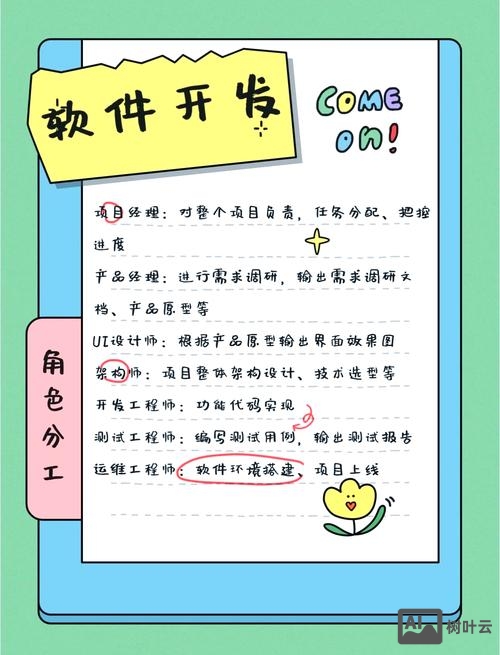 软件开发
COME
ON!
项目经理：对整个项目负责，任务分配、把控
进度
产品经理：进行需求调研，输出需求调研文
档、产品原型等
UI设计师：根据产品原型输出界面效果图
架构师：项目整体架构设计、技术选型等
开发工程师：功能代码实现
测试工程师：编写测试用例，输出测试报告
运维工程师：软件环境搭建、项目上线
角色分工
AI
树叶云